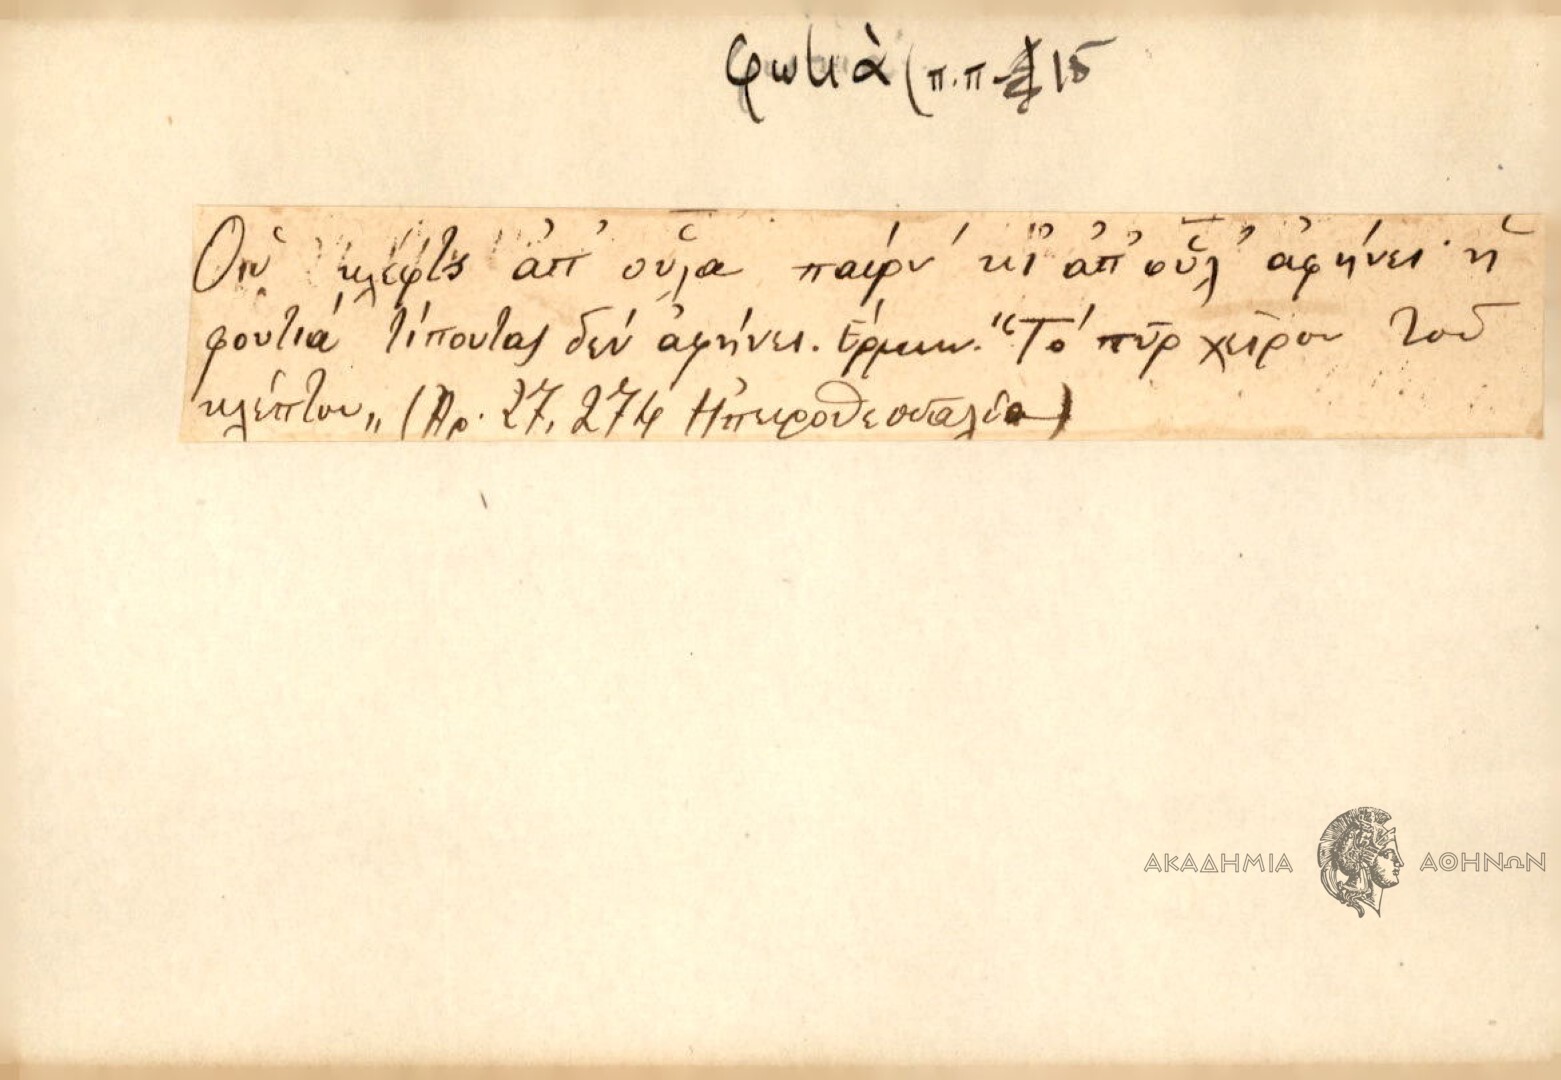 φωτιὰ (π.π. 15
Οὑ κλέφτς ἀπ' οὗλα παίρν' κι ἀπ' οὗλ' ἀφήνει· ἡ
φουτιά τίπουτας δέν ἀφήνει. Ἑρμην. "Τό πῦρ χεῖρον τοῦ
κλέπτου„ (Αρ. 27, 274 Ἠπειροθεσσαλία)
ΑΚΑΔΗΜΙΑ ΑΘΗΝΩΝ